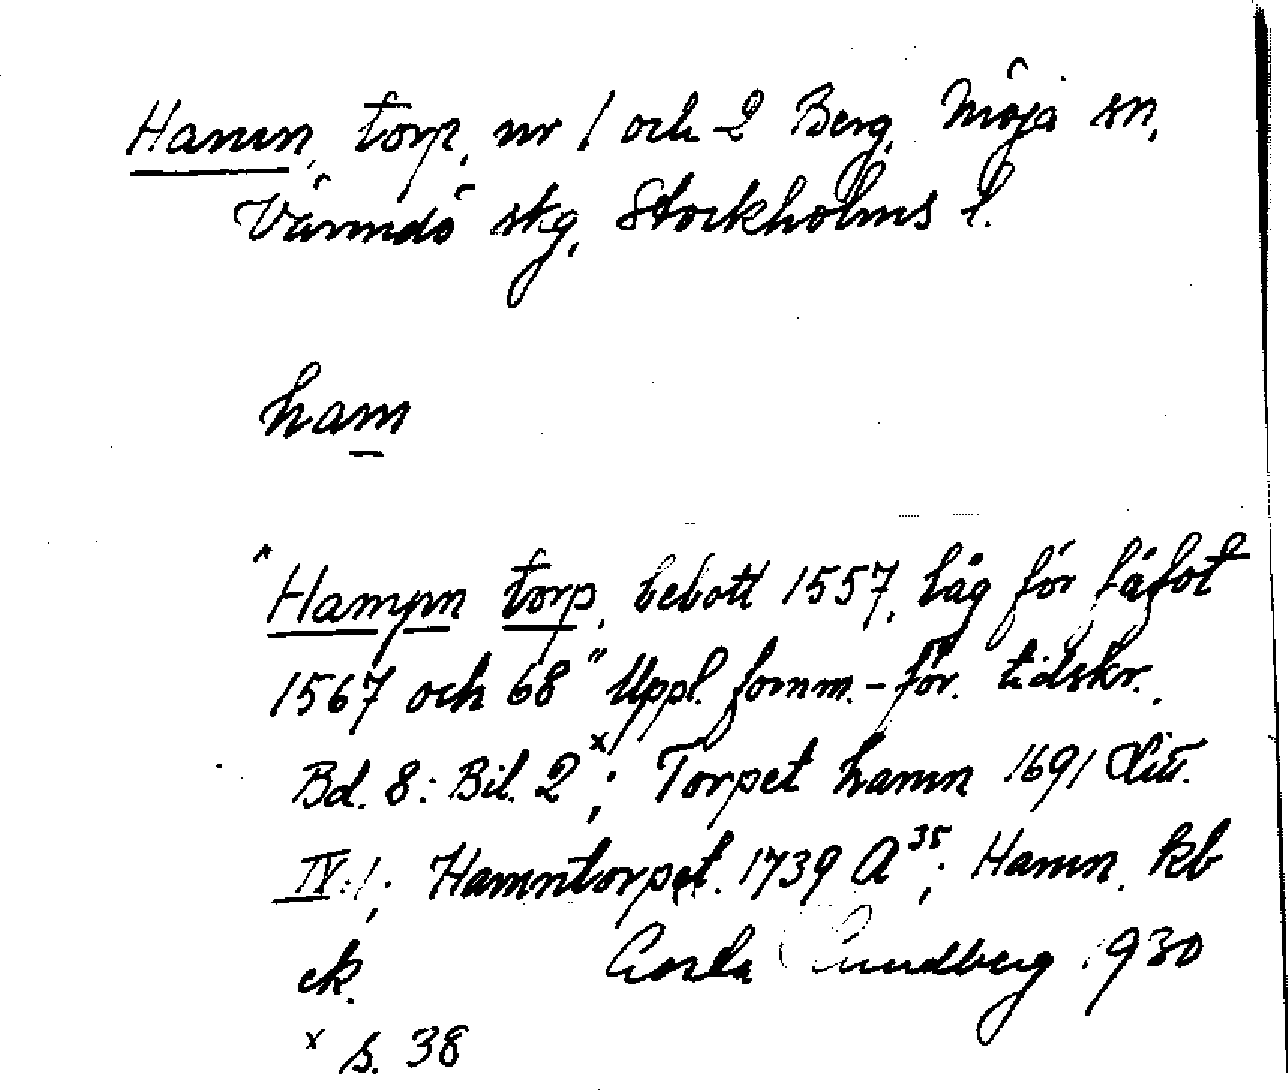 Hamn, torp, nr 1 och 2 Berg, Möja sn,
Värmdö skg, Stockholms l.
ham
"Hampn torp, bebott 1557, låg för fäfot
1567 och 68" Uppl. fornm.-för. tidskr.
Bd. 8: Bil. 2 x/; Torpet hamn 1691 Litt.
IV:1; Hamntorpet. 1739 A 35; Hamn. kb
ek. Lundberg 1930
x s. 38